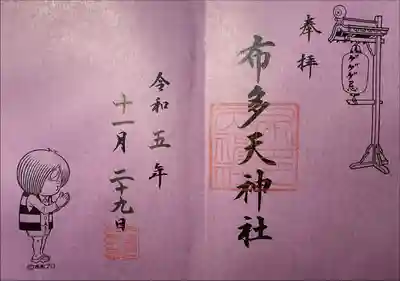 奉拝
布多天神社
令和五年
十一月二十九日
©水木プロ